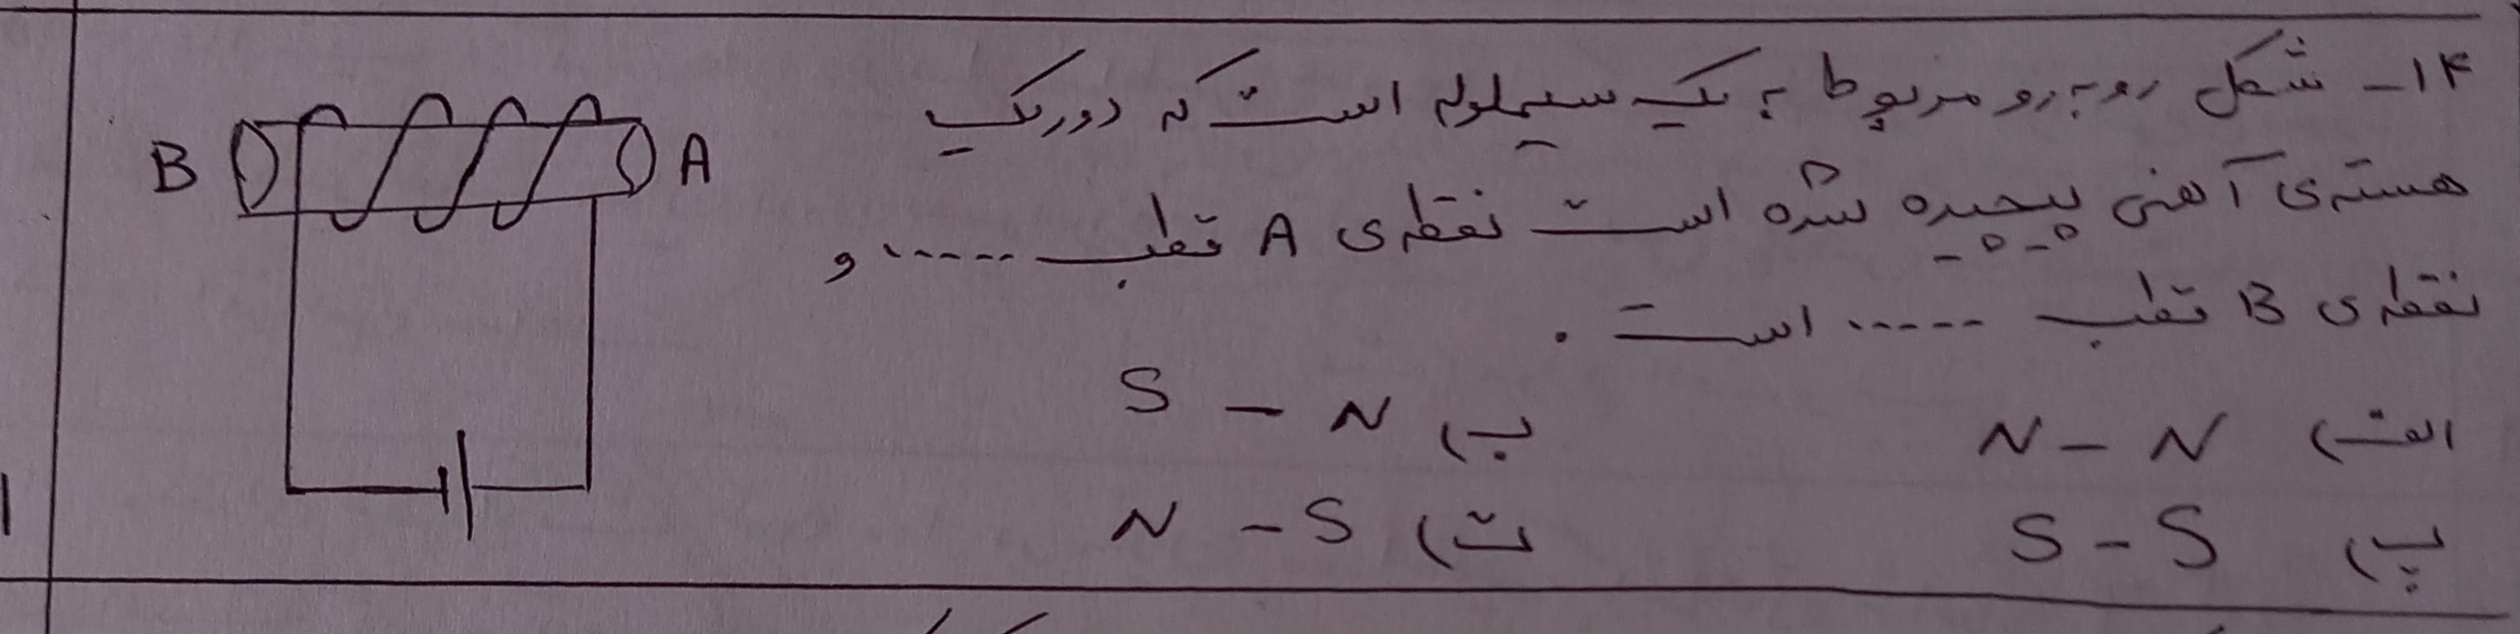 ۱۴- شکل روبه‌رو مربوط به یک سیملوله است که دور یک
هسته‌ی آهنی پیچیده شده است نقطه‌ی A قطب ..... و
نقطه‌ی B قطب ..... است .
الف) N - N ب) N - S
پ) S - S ت) S - N
B A
۱